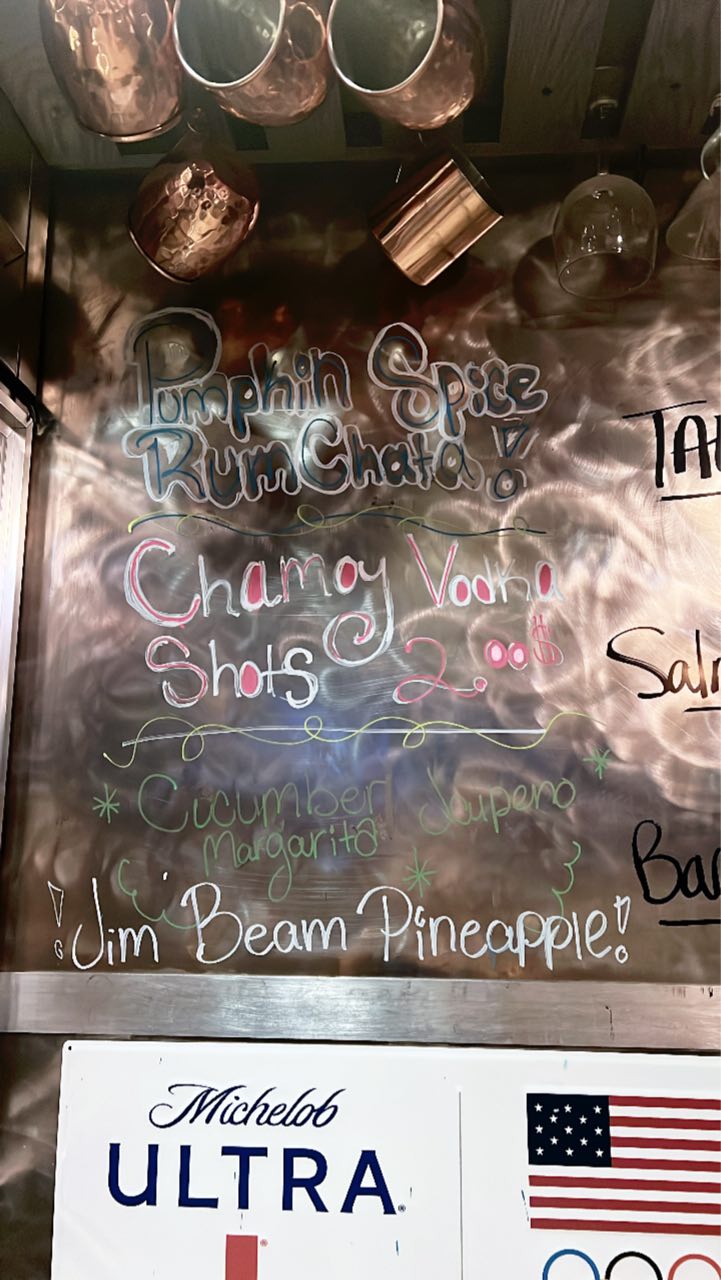 Pumpkin Spice
RumChata!
Chamoy Vodka
Shots 2.00$
*Cucumber Jlupeno*
Margarita *
¡Jim Beam Pineapple!
TA
Sal
Bar
Michelob
ULTRA